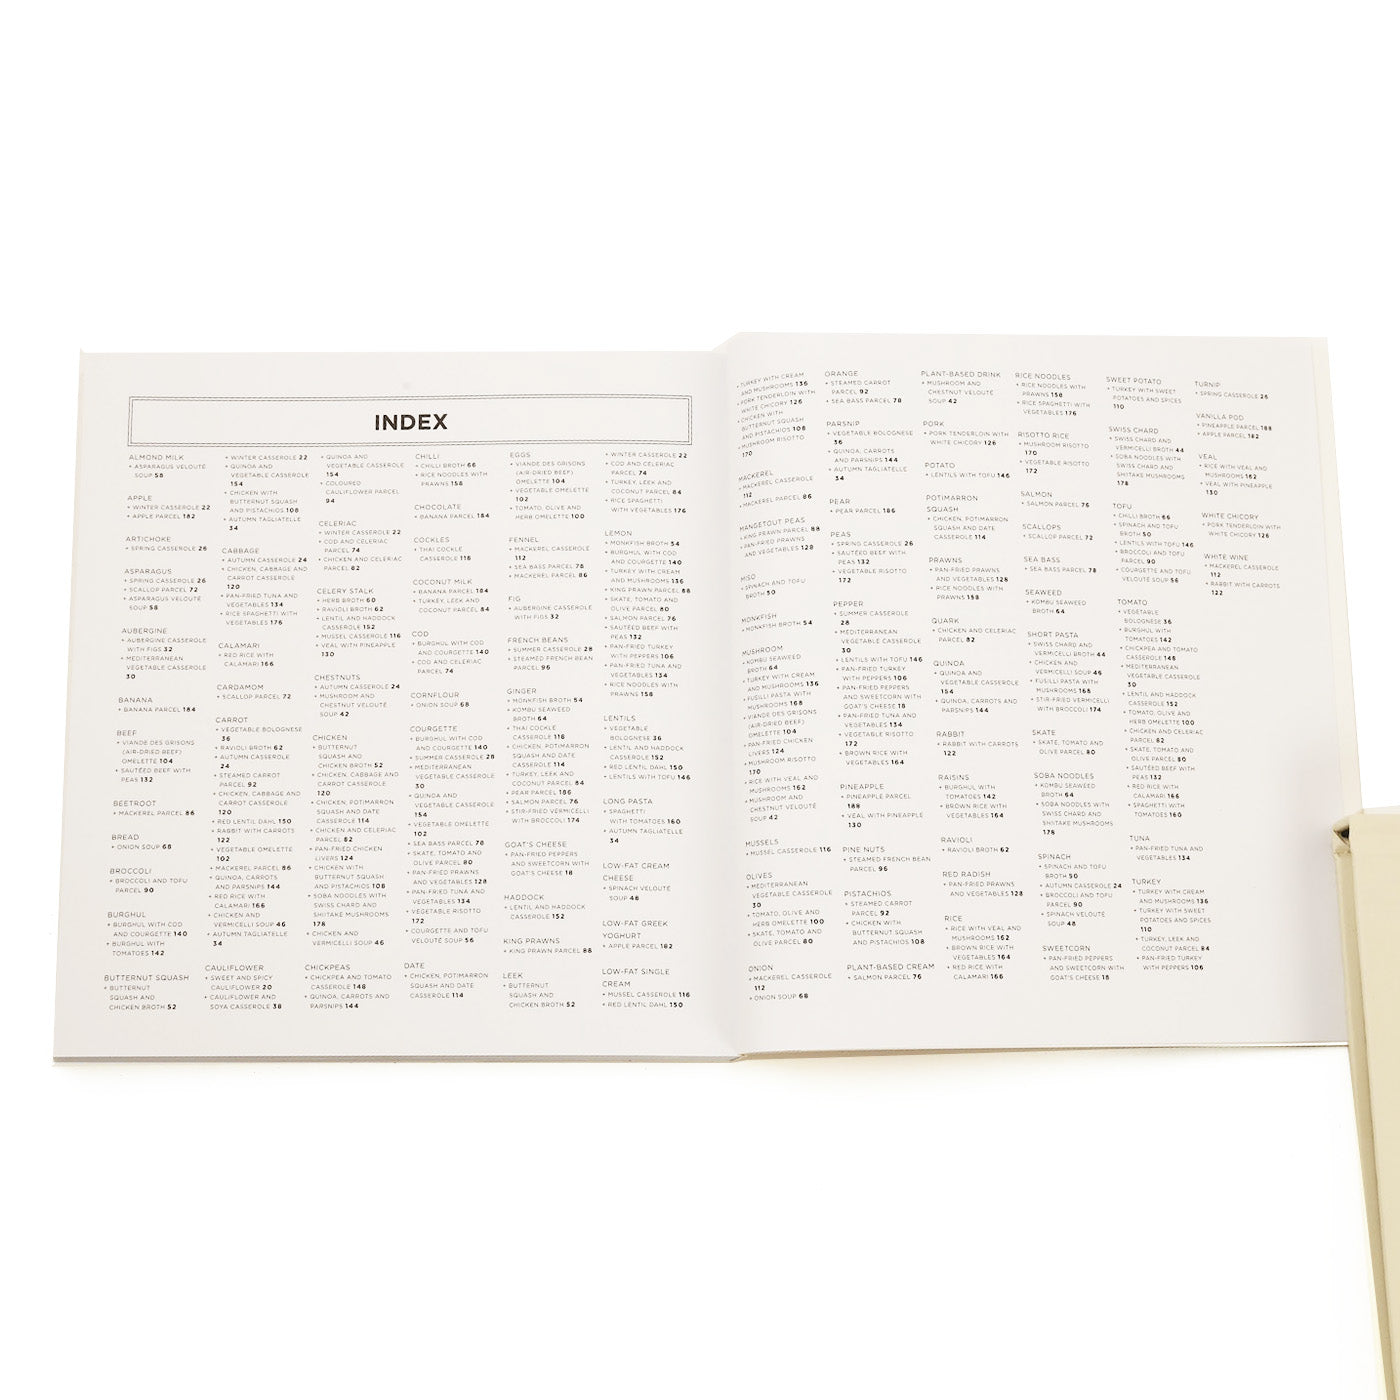 INDEX
ALMOND MILK
• ASPARAGUS VELOUTÉ
SOUP 58
APPLE
• WINTER CASSEROLE 22
• APPLE PARCEL 182
ARTICHOKE
• SPRING CASSEROLE 26
ASPARAGUS
• SPRING CASSEROLE 26
• SCALLOP PARCEL 72
• ASPARAGUS VELOUTÉ
SOUP 58
AUBERGINE
• AUBERGINE CASSEROLE
WITH FIGS 32
• MEDITERRANEAN
VEGETABLE CASSEROLE
30
BANANA
• BANANA PARCEL 184
BEEF
• VIANDE DES GRISONS
(AIR-DRIED BEEF)
OMELETTE 104
• SAUTÉED BEEF WITH
PEAS 132
BEETROOT
• MACKEREL PARCEL 86
BREAD
• ONION SOUP 68
BROCCOLI
• BROCCOLI AND TOFU
PARCEL 90
BURGHUL
• BURGHUL WITH COD
AND COURGETTE 140
• BURGHUL WITH
TOMATOES 142
BUTTERNUT SQUASH
• BUTTERNUT
SQUASH AND
CHICKEN BROTH 52
• WINTER CASSEROLE 22
• QUINOA AND
VEGETABLE CASSEROLE
154
• CHICKEN WITH
BUTTERNUT SQUASH
AND PISTACHIOS 108
• AUTUMN TAGLIATELLE
34
CABBAGE
• AUTUMN CASSEROLE 24
• CHICKEN, CABBAGE AND
CARROT CASSEROLE
120
• PAN-FRIED TUNA AND
VEGETABLES 134
• RICE SPAGHETTI WITH
VEGETABLES 176
CALAMARI
• RED RICE WITH
CALAMARI 166
CARDAMOM
• SCALLOP PARCEL 72
CARROT
• VEGETABLE BOLOGNESE
36
• RAVIOLI BROTH 62
• AUTUMN CASSEROLE
24
• STEAMED CARROT
PARCEL 92
• CHICKEN, CABBAGE AND
CARROT CASSEROLE
120
• RED LENTIL DAHL 150
• RABBIT WITH CARROTS
122
• VEGETABLE OMELETTE
102
• MACKEREL PARCEL 86
• QUINOA, CARROTS
AND PARSNIPS 144
• RED RICE WITH
CALAMARI 166
• CHICKEN AND
VERMICELLI SOUP 46
• AUTUMN TAGLIATELLE
34
CAULIFLOWER
• SWEET AND SPICY
CAULIFLOWER 20
• CAULIFLOWER AND
SOYA CASSEROLE 38
• QUINOA AND
VEGETABLE CASSEROLE
154
• COLOURED
CAULIFLOWER PARCEL
94
CELERIAC
• WINTER CASSEROLE 22
• COD AND CELERIAC
PARCEL 74
• CHICKEN AND CELERIAC
PARCEL 82
CELERY STALK
• HERB BROTH 60
• RAVIOLI BROTH 62
• LENTIL AND HADDOCK
CASSEROLE 152
• MUSSEL CASSEROLE 116
• VEAL WITH PINEAPPLE
130
CHESTNUTS
• AUTUMN CASSEROLE 24
• MUSHROOM AND
CHESTNUT VELOUTÉ
SOUP 42
CHICKEN
• BUTTERNUT
SQUASH AND
CHICKEN BROTH 52
• CHICKEN, CABBAGE AND
CARROT CASSEROLE
120
• CHICKEN, POTIMARRON
SQUASH AND DATE
CASSEROLE 114
• CHICKEN AND CELERIAC
PARCEL 82
• PAN-FRIED CHICKEN
LIVERS 124
• CHICKEN WITH
BUTTERNUT SQUASH
AND PISTACHIOS 108
• SOBA NOODLES WITH
SWISS CHARD AND
SHIITAKE MUSHROOMS
178
• CHICKEN AND
VERMICELLI SOUP 46
CHICKPEAS
• CHICKPEA AND TOMATO
CASSEROLE 148
• QUINOA, CARROTS AND
PARSNIPS 144
CHILLI
• CHILLI BROTH 66
• RICE NOODLES WITH
PRAWNS 158
CHOCOLATE
• BANANA PARCEL 184
COCKLES
• THAI COCKLE
CASSEROLE 118
COCONUT MILK
• BANANA PARCEL 184
• TURKEY, LEEK AND
COCONUT PARCEL 84
COD
• BURGHUL WITH COD
AND COURGETTE 140
• COD AND CELERIAC
PARCEL 74
CORNFLOUR
• ONION SOUP 68
COURGETTE
• BURGHUL WITH COD
AND COURGETTE 140
• SUMMER CASSEROLE 28
• MEDITERRANEAN
VEGETABLE CASSEROLE
30
• QUINOA AND
VEGETABLE CASSEROLE
154
• VEGETABLE OMELETTE
102
• SEA BASS PARCEL 78
• SKATE, TOMATO AND
OLIVE PARCEL 80
• PAN-FRIED PRAWNS
AND VEGETABLES 128
• PAN-FRIED TUNA AND
VEGETABLES 134
• VEGETABLE RISOTTO
172
• COURGETTE AND TOFU
VELOUTÉ SOUP 56
DATE
• CHICKEN, POTIMARRON
SQUASH AND DATE
CASSEROLE 114
EGGS
• VIANDE DES GRISONS
(AIR-DRIED BEEF)
OMELETTE 104
• VEGETABLE OMELETTE
102
• TOMATO, OLIVE AND
HERB OMELETTE 100
FENNEL
• MACKEREL CASSEROLE
112
• SEA BASS PARCEL 78
• MACKEREL PARCEL 86
FIG
• AUBERGINE CASSEROLE
WITH FIGS 32
FRENCH BEANS
• SUMMER CASSEROLE 28
• STEAMED FRENCH BEAN
PARCEL 96
GINGER
• MONKFISH BROTH 54
• KOMBU SEAWEED
BROTH 64
• THAI COCKLE
CASSEROLE 118
• CHICKEN, POTIMARRON
SQUASH AND DATE
CASSEROLE 114
• TURKEY, LEEK AND
COCONUT PARCEL 84
• PEAR PARCEL 186
• SALMON PARCEL 76
• STIR-FRIED VERMICELLI
WITH BROCCOLI 174
GOAT'S CHEESE
• PAN-FRIED PEPPERS
AND SWEETCORN WITH
GOAT'S CHEESE 18
HADDOCK
• LENTIL AND HADDOCK
CASSEROLE 152
KING PRAWNS
• KING PRAWN PARCEL 88
LEEK
• BUTTERNUT
SQUASH AND
CHICKEN BROTH 52
• WINTER CASSEROLE 22
• COD AND CELERIAC
PARCEL 74
• TURKEY, LEEK AND
COCONUT PARCEL 84
• RICE SPAGHETTI
WITH VEGETABLES 176
LEMON
• MONKFISH BROTH 54
• BURGHUL WITH COD
AND COURGETTE 140
• TURKEY WITH CREAM
AND MUSHROOMS 136
• KING PRAWN PARCEL 88
• SKATE, TOMATO AND
OLIVE PARCEL 80
• SALMON PARCEL 76
• SAUTÉED BEEF WITH
PEAS 132
• PAN-FRIED TURKEY
WITH PEPPERS 106
• PAN-FRIED TUNA AND
VEGETABLES 134
• RICE NOODLES WITH
PRAWNS 158
LENTILS
• VEGETABLE
BOLOGNESE 36
• LENTIL AND HADDOCK
CASSEROLE 152
• RED LENTIL DAHL 150
• LENTILS WITH TOFU 146
LONG PASTA
• SPAGHETTI
WITH TOMATOES 160
• AUTUMN TAGLIATELLE
34
LOW-FAT CREAM
CHEESE
• SPINACH VELOUTÉ
SOUP 48
LOW-FAT GREEK
YOGHURT
• APPLE PARCEL 182
LOW-FAT SINGLE
CREAM
• MUSSEL CASSEROLE 116
• RED LENTIL DAHL 150
• TURKEY WITH CREAM
AND MUSHROOMS 136
• PORK TENDERLOIN WITH
WHITE CHICORY 126
• CHICKEN WITH
BUTTERNUT SQUASH
AND PISTACHIOS 108
• MUSHROOM RISOTTO
170
MACKEREL
• MACKEREL CASSEROLE
112
• MACKEREL PARCEL 86
MANGETOUT PEAS
• KING PRAWN PARCEL 88
• PAN-FRIED PRAWNS
AND VEGETABLES 128
MISO
• SPINACH AND TOFU
BROTH 50
MONKFISH
• MONKFISH BROTH 54
MUSHROOM
• KOMBU SEAWEED
BROTH 64
• TURKEY WITH CREAM
AND MUSHROOMS 136
• FUSILLI PASTA WITH
MUSHROOMS 168
• VIANDE DES GRISONS
(AIR-DRIED BEEF)
OMELETTE 104
• PAN-FRIED CHICKEN
LIVERS 124
• MUSHROOM RISOTTO
170
• RICE WITH VEAL AND
MUSHROOMS 162
• MUSHROOM AND
CHESTNUT VELOUTÉ
SOUP 42
MUSSELS
• MUSSEL CASSEROLE 116
OLIVES
• MEDITERRANEAN
VEGETABLE CASSEROLE
30
• TOMATO, OLIVE AND
HERB OMELETTE 100
• SKATE, TOMATO AND
OLIVE PARCEL 80
ONION
• MACKEREL CASSEROLE
112
• ONION SOUP 68
ORANGE
• STEAMED CARROT
PARCEL 92
• SEA BASS PARCEL 78
PARSNIP
• VEGETABLE BOLOGNESE
36
• QUINOA, CARROTS
AND PARSNIPS 144
• AUTUMN TAGLIATELLE
34
PEAR
• PEAR PARCEL 186
PEAS
• SPRING CASSEROLE 26
• SAUTÉED BEEF WITH
PEAS 132
• VEGETABLE RISOTTO
172
PEPPER
• SUMMER CASSEROLE
28
• MEDITERRANEAN
VEGETABLE CASSEROLE
30
• LENTILS WITH TOFU 146
• PAN-FRIED TURKEY
WITH PEPPERS 106
• PAN-FRIED PEPPERS
AND SWEETCORN WITH
GOAT'S CHEESE 18
• PAN-FRIED TUNA AND
VEGETABLES 134
• VEGETABLE RISOTTO
172
• BROWN RICE WITH
VEGETABLES 164
PINEAPPLE
• PINEAPPLE PARCEL
188
• VEAL WITH PINEAPPLE
130
PINE NUTS
• STEAMED FRENCH BEAN
PARCEL 96
PISTACHIOS
• STEAMED CARROT
PARCEL 92
• CHICKEN WITH
BUTTERNUT SQUASH
AND PISTACHIOS 108
PLANT-BASED CREAM
• SALMON PARCEL 76
PLANT-BASED DRINK
• MUSHROOM AND
CHESTNUT VELOUTÉ
SOUP 42
PORK
• PORK TENDERLOIN WITH
WHITE CHICORY 126
POTATO
• LENTILS WITH TOFU 146
POTIMARRON
SQUASH
• CHICKEN, POTIMARRON
SQUASH AND DATE
CASSEROLE 114
PRAWNS
• PAN-FRIED PRAWNS
AND VEGETABLES 128
• RICE NOODLES WITH
PRAWNS 158
QUARK
• CHICKEN AND CELERIAC
PARCEL 82
QUINOA
• QUINOA AND
VEGETABLE CASSEROLE
154
• QUINOA, CARROTS AND
PARSNIPS 144
RABBIT
• RABBIT WITH CARROTS
122
RAISINS
• BURGHUL WITH
TOMATOES 142
• BROWN RICE WITH
VEGETABLES 164
RAVIOLI
• RAVIOLI BROTH 62
RED RADISH
• PAN-FRIED PRAWNS
AND VEGETABLES 128
RICE
• RICE WITH VEAL AND
MUSHROOMS 162
• BROWN RICE WITH
VEGETABLES 164
• RED RICE WITH
CALAMARI 166
RICE NOODLES
• RICE NOODLES WITH
PRAWNS 158
• RICE SPAGHETTI WITH
VEGETABLES 176
RISOTTO RICE
• MUSHROOM RISOTTO
170
• VEGETABLE RISOTTO
172
SALMON
• SALMON PARCEL 76
SCALLOPS
• SCALLOP PARCEL 72
SEA BASS
• SEA BASS PARCEL 78
SEAWEED
• KOMBU SEAWEED
BROTH 64
SHORT PASTA
• SWISS CHARD AND
VERMICELLI BROTH 44
• CHICKEN AND
VERMICELLI SOUP 46
• FUSILLI PASTA WITH
MUSHROOMS 168
• STIR-FRIED VERMICELLI
WITH BROCCOLI 174
SKATE
• SKATE, TOMATO AND
OLIVE PARCEL 80
SOBA NOODLES
• KOMBU SEAWEED
BROTH 64
• SOBA NOODLES WITH
SWISS CHARD AND
SHIITAKE MUSHROOMS
178
SPINACH
• SPINACH AND TOFU
BROTH 50
• AUTUMN CASSEROLE 24
• BROCCOLI AND TOFU
PARCEL 90
• SPINACH VELOUTÉ
SOUP 48
SWEETCORN
• PAN-FRIED PEPPERS
AND SWEETCORN WITH
GOAT'S CHEESE 18
SWEET POTATO
• TURKEY WITH SWEET
POTATOES AND SPICES
110
SWISS CHARD
• SWISS CHARD AND
VERMICELLI BROTH 44
• SOBA NOODLES WITH
SWISS CHARD AND
SHIITAKE MUSHROOMS
178
TOFU
• CHILLI BROTH 66
• SPINACH AND TOFU
BROTH 50
• LENTILS WITH TOFU 146
• BROCCOLI AND TOFU
PARCEL 90
• COURGETTE AND TOFU
VELOUTÉ SOUP 56
TOMATO
• VEGETABLE
BOLOGNESE 36
• BURGHUL WITH
TOMATOES 142
• CHICKPEA AND TOMATO
CASSEROLE 148
• MEDITERRANEAN
VEGETABLE CASSEROLE
30
• LENTIL AND HADDOCK
CASSEROLE 152
• TOMATO, OLIVE AND
HERB OMELETTE 100
• CHICKEN AND CELERIAC
PARCEL 82
• SKATE, TOMATO AND
OLIVE PARCEL 80
• SAUTÉED BEEF WITH
PEAS 132
• RED RICE WITH
CALAMARI 166
• SPAGHETTI WITH
TOMATOES 160
TUNA
• PAN-FRIED TUNA AND
VEGETABLES 134
TURKEY
• TURKEY WITH CREAM
AND MUSHROOMS 136
• TURKEY WITH SWEET
POTATOES AND SPICES
110
• TURKEY, LEEK AND
COCONUT PARCEL 84
• PAN-FRIED TURKEY
WITH PEPPERS 106
TURNIP
• SPRING CASSEROLE 26
VANILLA POD
• PINEAPPLE PARCEL 188
• APPLE PARCEL 182
VEAL
• RICE WITH VEAL AND
MUSHROOMS 162
• VEAL WITH PINEAPPLE
130
WHITE CHICORY
• PORK TENDERLOIN WITH
WHITE CHICORY 126
WHITE WINE
• MACKEREL CASSEROLE
112
• RABBIT WITH CARROTS
122